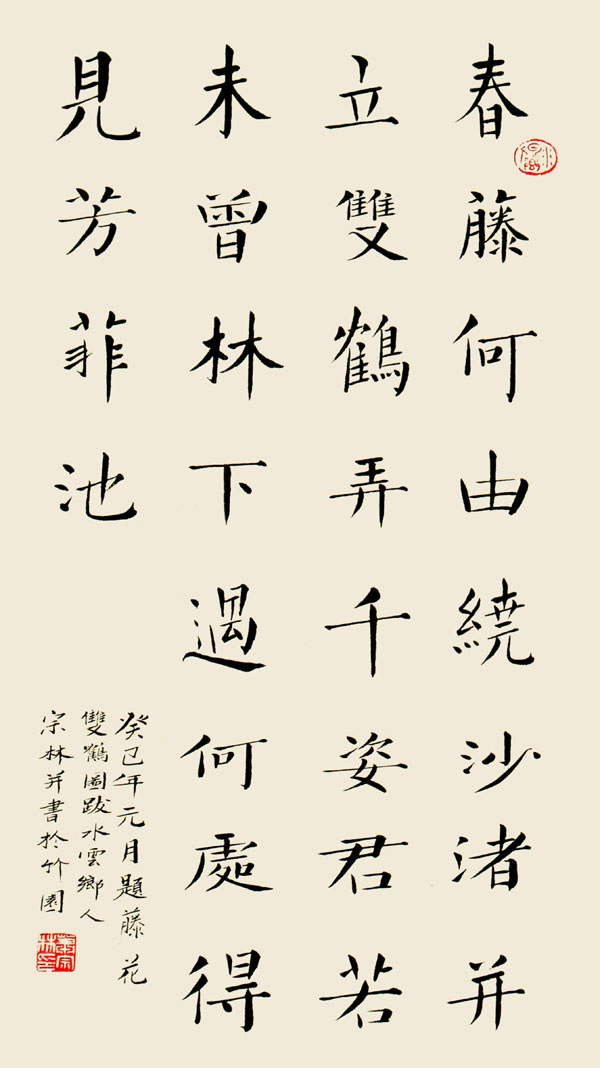 春藤何由繞沙渚并
立雙鶴弄千姿君若
未曾林下遇何處得
見芳菲池
癸巳年元月題藤花
雙鶴圖跋水雲鄉人
宗林并書於竹園